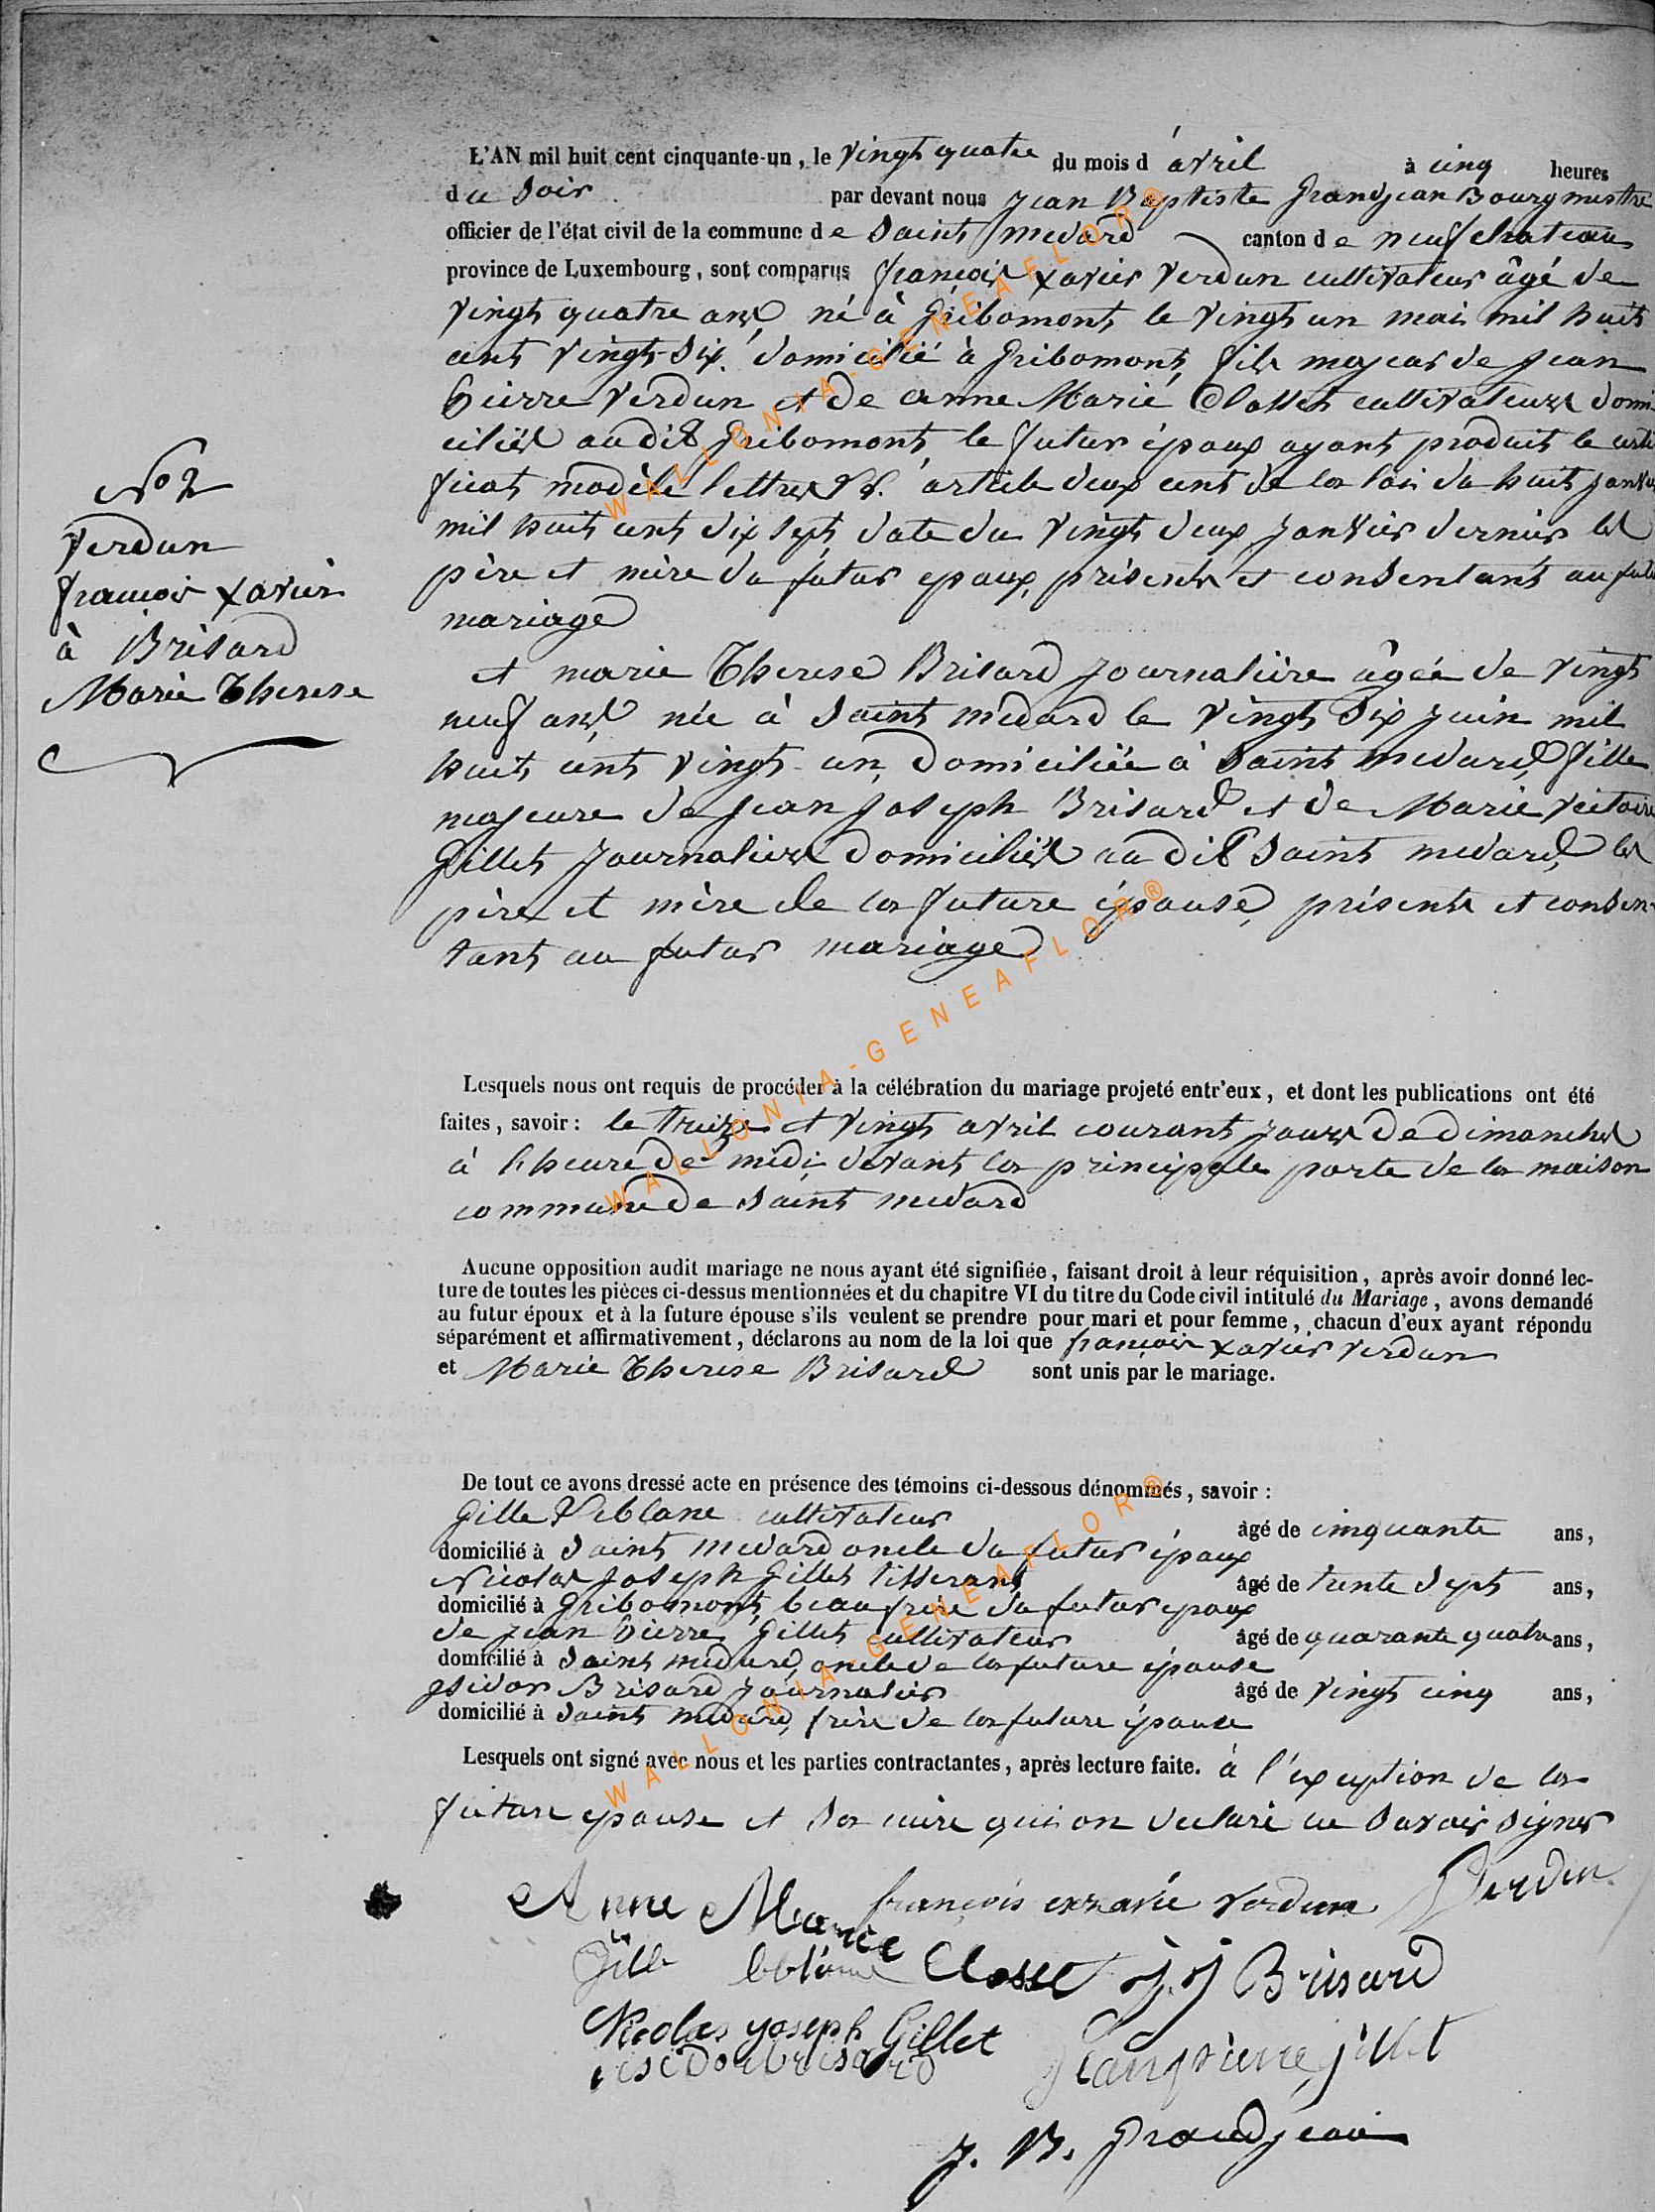 L'AN mil huit cent cinquante-un, le vingt quatre du mois d'avril à cinq heures
du soir par devant nous Jean Baptiste Grandjean Bourgmestre
officier de l'état civil de la commune de Saint Médard canton de neufchateau
province de Luxembourg, sont comparus françois xavier Verdun cultivateur âgé de
vingt quatre ans, né à Gribomont le vingt un mai mil huit
cent vingt-six. domicilié à Gribomont, fils majeur de Jean
Pierre Verdun et de anne Marie Closset cultivateurs domi
ciliés audit Gribomont, le futur époux ayant produit le certi
ficat modèle lettres article deux cent de la loi du huit janvier
mil huit cent dix sept, date du vingt deux janvier dernier les
père et mère du futur epoux, présents et consentants au futur
mariage
N° 2
Verdun
françois xavier
à Brisard
Marie Therese
et marie Therese Brisard journalière âgée de vingt
neuf ans, née à Saint médard le vingt six juin mil
huit cent vingt-un, domiciliée à Saint medard, fille
majeure de Jean Joseph Brisard et de Marie Victoire
Gillet journaliers domiciliés au dit Saint medard, les
père et mère de la future épouse, présents et consen-
tant au futur mariage
Lesquels nous ont requis de procéder à la célébration du mariage projeté entr'eux, et dont les publications ont été
faites, savoir : le treize et vingt avril courant jours de dimanches
à l'heure de midi devant la principale porte de la maison
commune de Saint medard
Aucune opposition audit mariage ne nous ayant été signifiée, faisant droit à leur réquisition, après avoir donné lec-
ture de toutes les pièces ci-dessus mentionnées et du chapitre VI du titre du Code civil intitulé du Mariage, avons demandé
au futur époux et à la future épouse s'ils veulent se prendre pour mari et pour femme, chacun d'eux ayant répondu
séparément et affirmativement, déclarons au nom de la loi que françois xavier Verdun
et Marie Therese Brisard sont unis par le mariage.
De tout ce avons dressé acte en présence des témoins ci-dessous dénommés, savoir :
Gille cultivateur âgé de cinquante ans,
domicilié à Saint Médard oncle du futur époux
Nicolas Joseph Gillet tisserant âgé de trente sept ans,
domicilié à Gribomont, beau frère du futur epoux
de jean Pierre Gillet cultivateur âgé de quarante quatre ans,
domicilié à Saint medard, oncle de la future épouse
Isidor Brisard journalier âgé de vingt cinq ans,
domicilié à Saint medard, frère de la future épouse
Lesquels ont signé avec nous et les parties contractantes, après lecture faite. à l'exception de la
future epouse et sa mère qui on declaré ne savoir signer
Anne Marie françois verdun Verdun
Gille Closset J J Brisard
Nicolas yoseph Gillet Jean pierre gillet
isidor brisard
J. B. Grandjean
WALLONIA-GENEAFLOR®
WALLONIA-GENEAFLOR®
WALLONIA-GENEAFLOR®